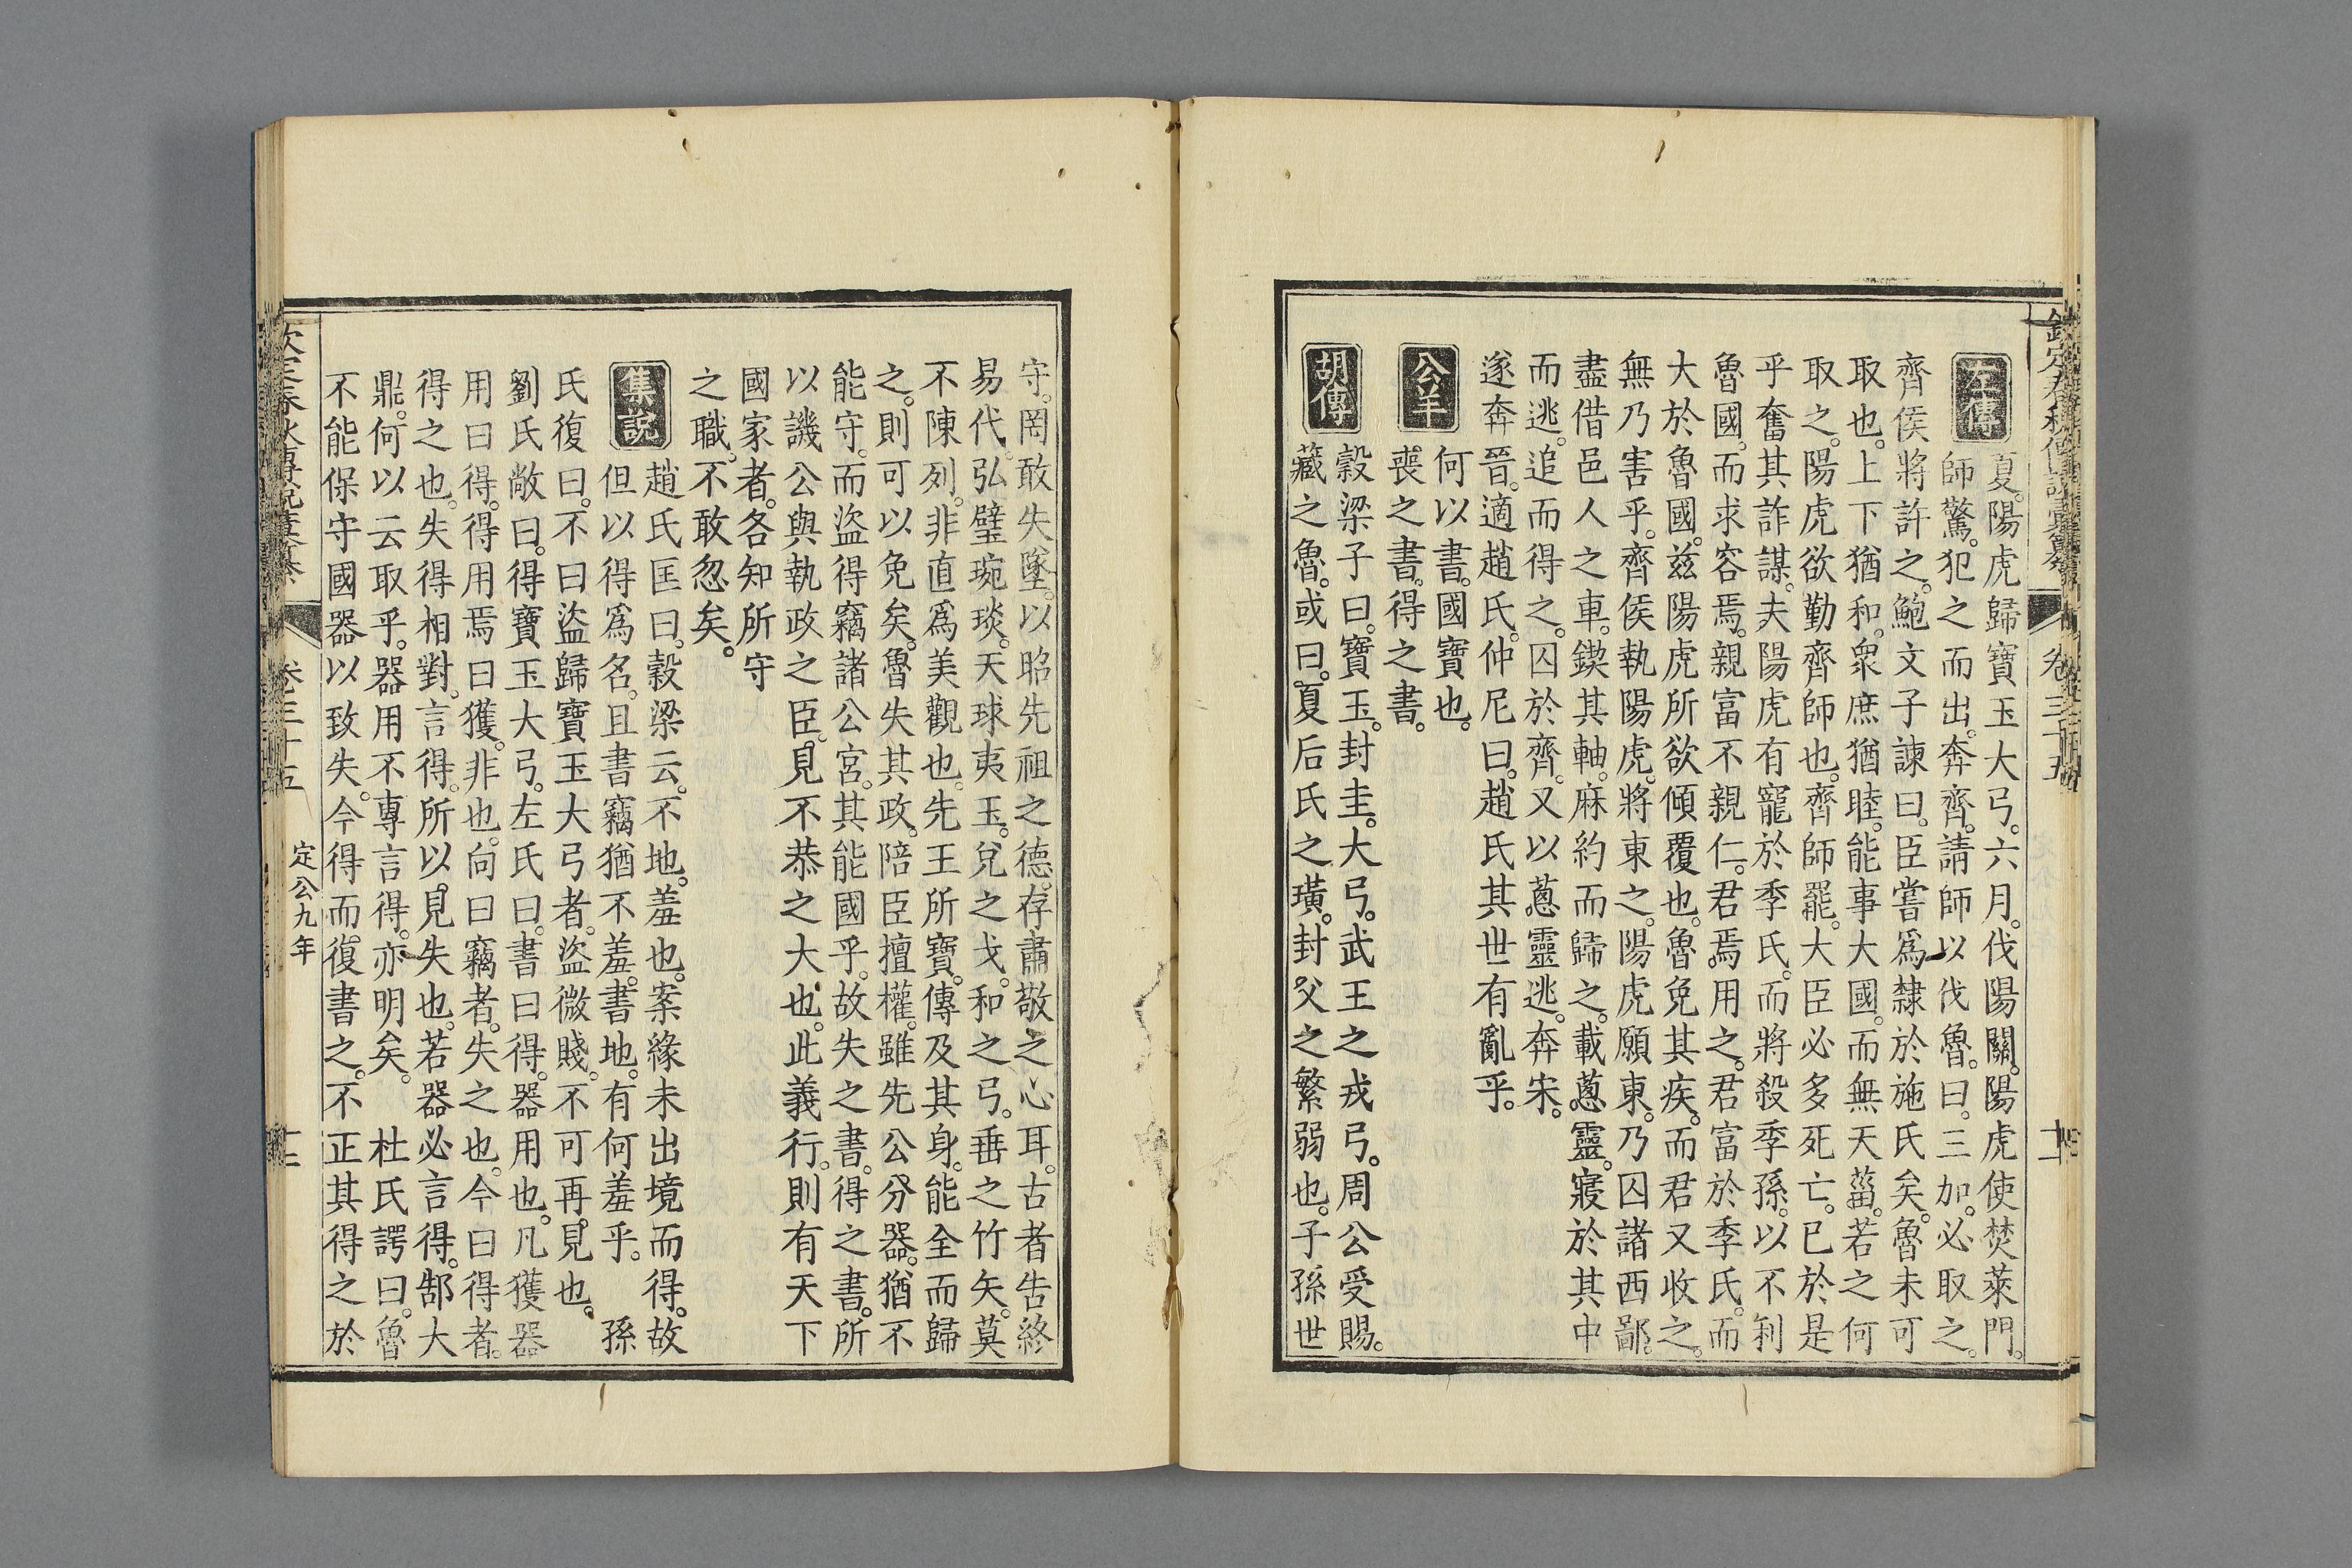 欽定春秋傳說彙纂
卷三十五
左傳
夏。陽虎歸寶玉大弓。六月。伐陽關。陽虎使焚萊門。
師驚。犯之而出。奔齊。請師以伐魯。曰。三加。必取之。
齊侯將許之。鮑文子諫曰。臣嘗爲隸於施氏矣。魯未可
取也。上下猶和。衆庶猶睦。能事大國。而無天菑。若之何
取之。陽虎欲勤齊師也。齊師罷。大臣必多死亡。已於是
乎奮其詐謀。夫陽虎有寵於季氏。而將殺季孫。以不利
魯國。而求容焉。親富不親仁。君焉用之。君富於季氏。而
大於魯國。茲陽虎所欲傾覆也。魯免其疾。而君又收之。
無乃害乎。齊侯執陽虎。將東之。陽虎願東。乃囚諸西鄙。
盡借邑人之車。鍥其軸。麻約而歸之。載蔥靈。寢於其中
而逃。追而得之。囚於齊。又以蔥靈逃。奔宋。
遂奔晉。適趙氏。仲尼曰。趙氏其世有亂乎。
公羊
何以書。國寶也。
喪之書。得之書。
胡傳
穀梁子曰。寶玉。封圭。大弓。武王之戎弓。周公受賜。
藏之魯。或曰。夏后氏之璜。封父之繁弱也。子孫世
守。罔敢失墜。以昭先祖之德。存肅敬之心耳。古者告終
易代。弘璧琬琰。天球夷玉。兌之戈。和之弓。垂之竹矢。莫
不陳列。非直爲美觀也。先王所寶。傳及其身。能全而歸
之。則可以免矣。魯失其政。陪臣擅權。雖先公分器。猶不
能守。而盜得竊諸公宮。其能國乎。故失之書。得之書。所
以譏公與執政之臣。見不恭之大也。此義行。則有天下
國家者。各知所守
之職。不敢忽矣。
集說
趙氏匡曰。穀梁云。不地。羞也。案緣未出境而得。故
但以得爲名。且書竊猶不羞。書地。有何羞乎。 孫
氏復曰。不曰盜歸寶玉大弓者。盜微賤。不可再見也。
劉氏敞曰。得寶玉大弓。左氏曰。書曰得。器用也。凡獲器
用曰得。得用焉曰獲。非也。向曰竊者。失之也。今曰得者。
得之也。失得相對。言得。所以見失也。若器必言得。郜大
鼎。何以云取乎。器用不專言得。亦明矣。 杜氏諤曰。魯
不能保守國器以致失。今得而復書之。不正其得之於
欽定春秋傳說彙纂
卷三十五
定公九年